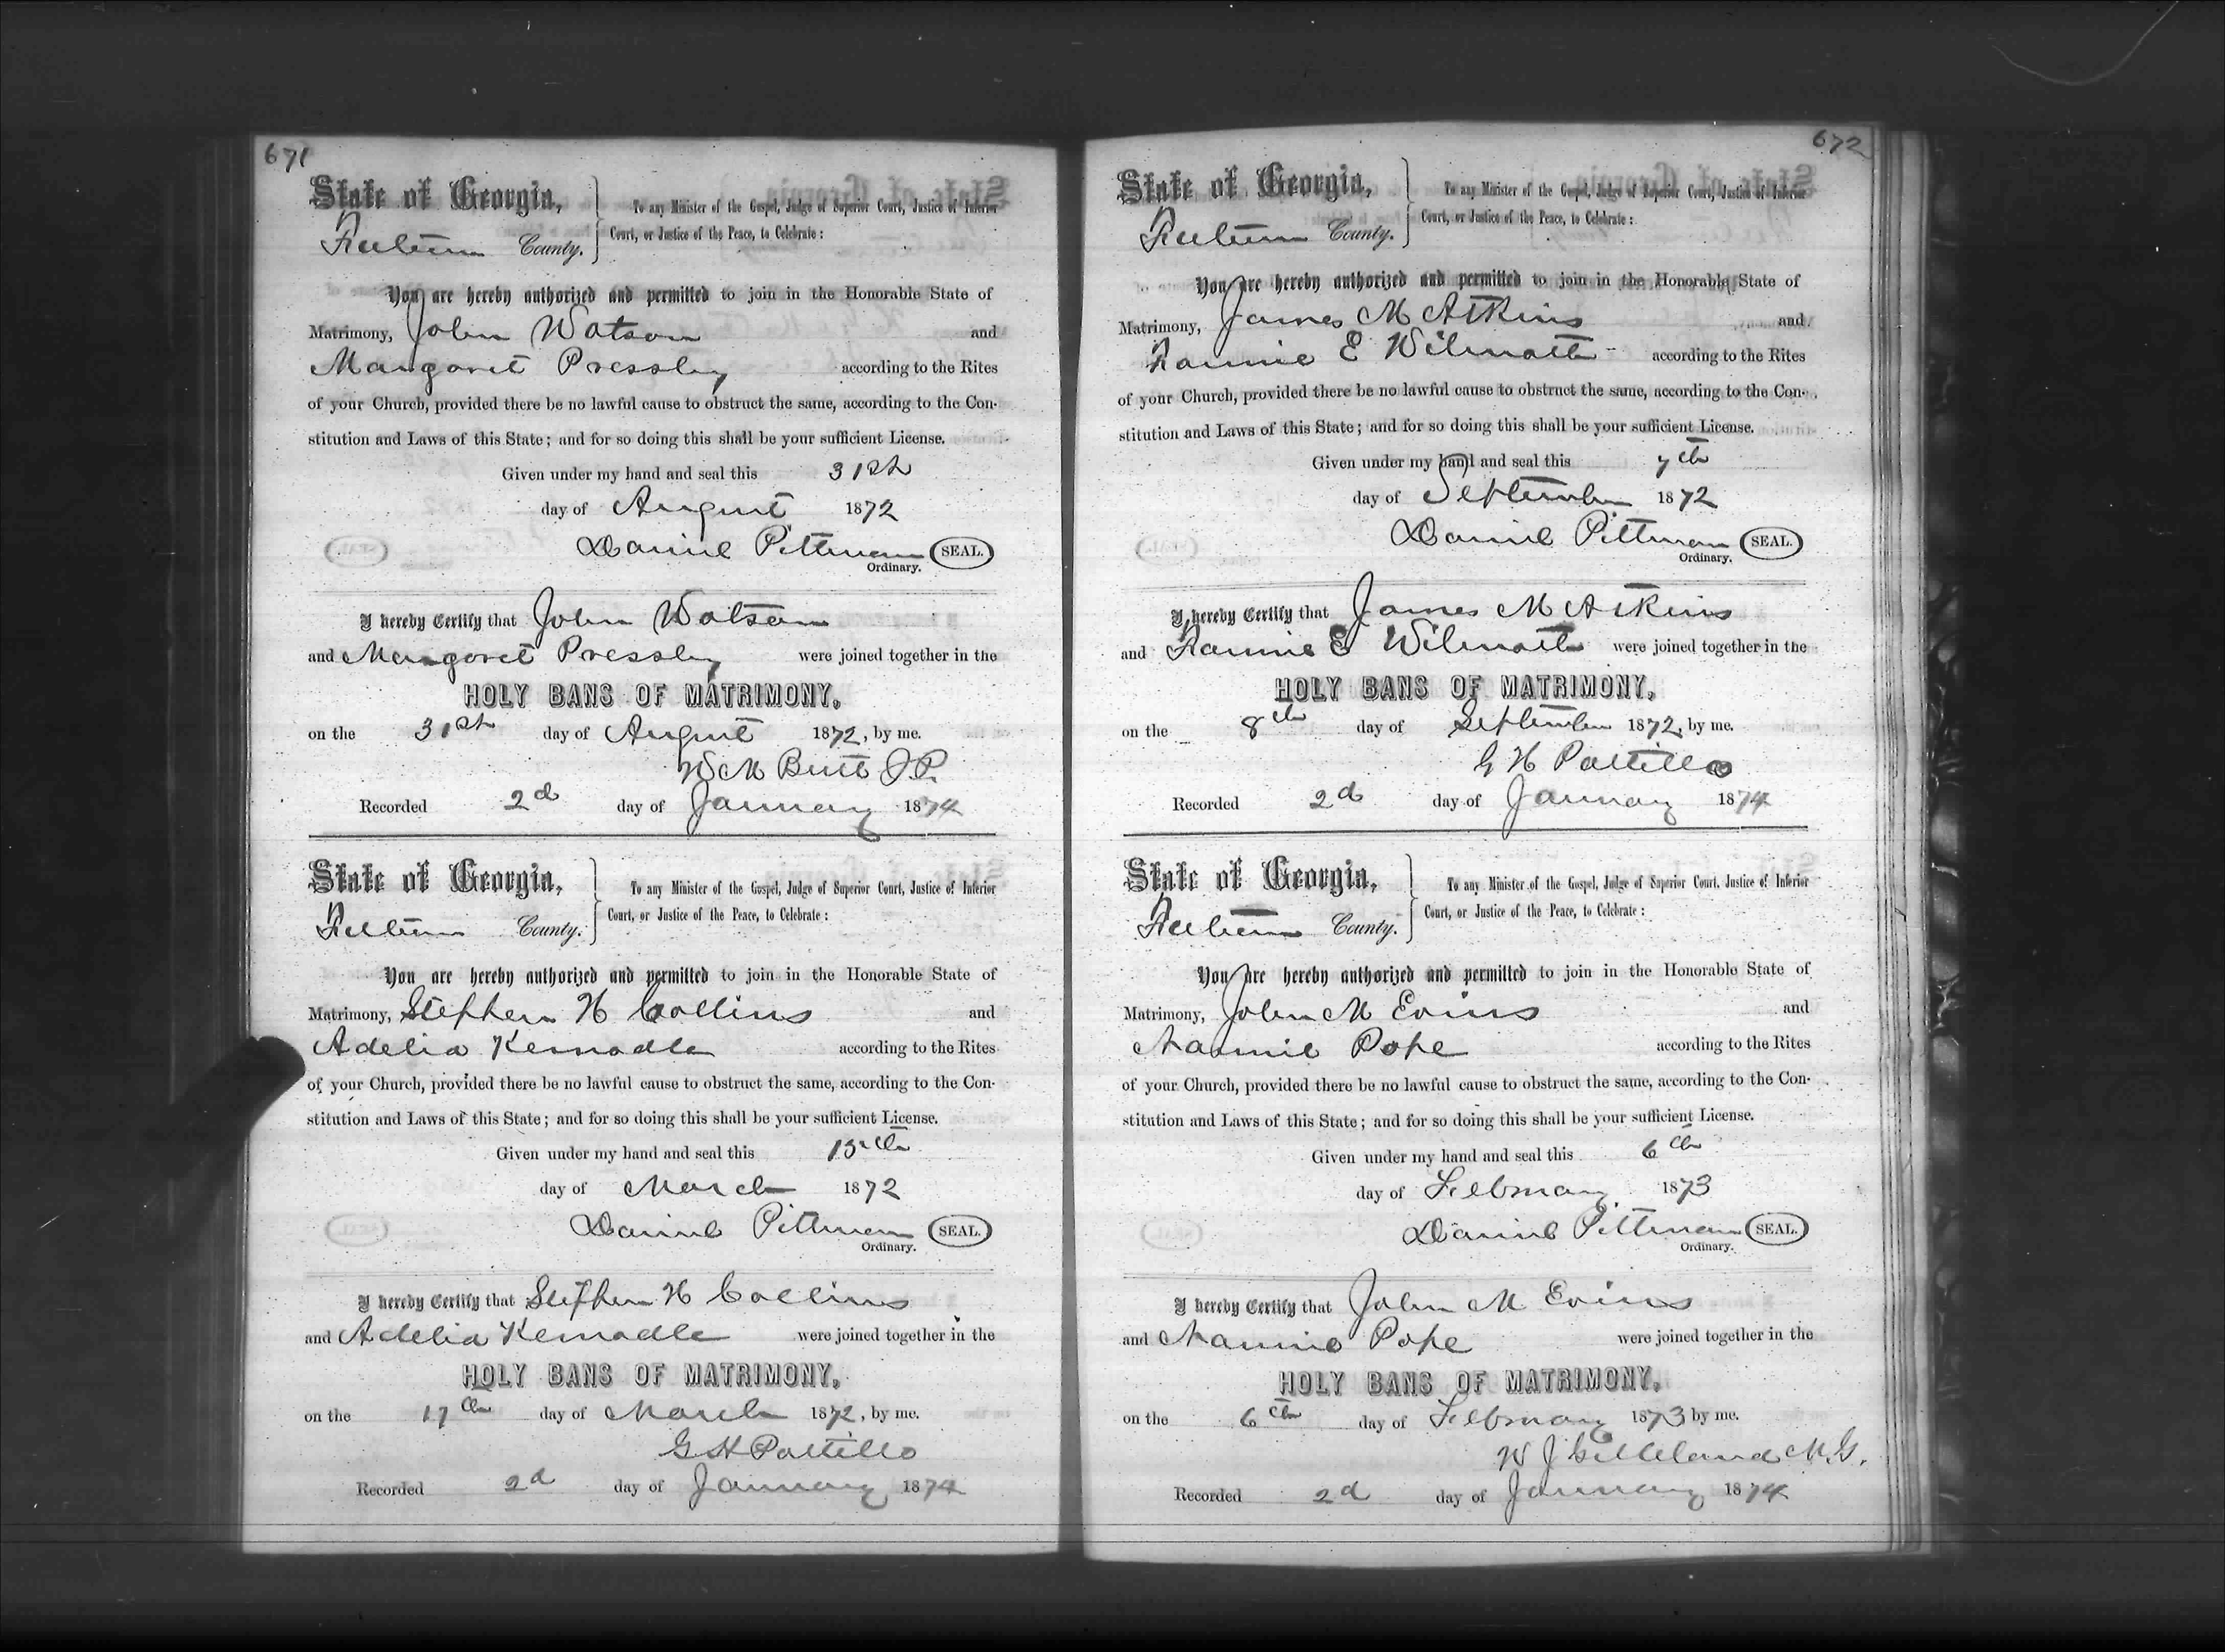 671
State of Georgia,
Fulton County.
To any Minister of the Gospel, Judge of Superior Court, Justice of Inferior
Court, or Justice of the Peace, to Celebrate:
You are hereby authorized and permitted to join in the Honorable State of
Matrimony, John Watson and
Margaret Pressley according to the Rites
of your Church, provided there be no lawful cause to obstruct the same, according to the Con-
stitution and Laws of this State; and for so doing this shall be your sufficient License.
Given under my hand and seal this 31st
day of August 1872
Daniel Pittman SEAL.
Ordinary.
I hereby Certify that John Watson
and Margaret Pressley were joined together in the
HOLY BANS OF MATRIMONY,
on the 31st day of August 1872, by me.
W M Butt J.P.
Recorded 2d day of January 1874
State of Georgia,
Fulton County.
To any Minister of the Gospel, Judge of Superior Court, Justice of Inferior
Court, or Justice of the Peace, to Celebrate:
You are hereby authorized and permitted to join in the Honorable State of
Matrimony, Stephen H Collins and
Adelia Kernodle according to the Rites
of your Church, provided there be no lawful cause to obstruct the same, according to the Con-
stitution and Laws of this State; and for so doing this shall be your sufficient License.
Given under my hand and seal this 15th
day of March 1872
Daniel Pittman SEAL.
Ordinary.
I hereby Certify that Stephen H Collins
and Adelia Kernodle were joined together in the
HOLY BANS OF MATRIMONY,
on the 17th day of March 1872, by me.
G H Pattillo
Recorded 2d day of January 1874
672
State of Georgia,
Fulton County.
To any Minister of the Gospel, Judge of Superior Court, Justice of Inferior
Court, or Justice of the Peace, to Celebrate:
You are hereby authorized and permitted to join in the Honorable State of
Matrimony, James M Atkins and
Fannie E Wilmoth according to the Rites
of your Church, provided there be no lawful cause to obstruct the same, according to the Con-
stitution and Laws of this State; and for so doing this shall be your sufficient License.
Given under my hand and seal this 7th
day of September 1872
Daniel Pittman SEAL.
Ordinary.
I hereby Certify that James M Atkins
and Fannie E Wilmoth were joined together in the
HOLY BANS OF MATRIMONY,
on the 8th day of September 1872, by me.
G H Pattillo
Recorded 2d day of January 1874
State of Georgia,
Fulton County.
To any Minister of the Gospel, Judge of Superior Court, Justice of Inferior
Court, or Justice of the Peace, to Celebrate:
You are hereby authorized and permitted to join in the Honorable State of
Matrimony, John M Evins and
Nannie Pope according to the Rites
of your Church, provided there be no lawful cause to obstruct the same, according to the Con-
stitution and Laws of this State; and for so doing this shall be your sufficient License.
Given under my hand and seal this 6th
day of February 1873
Daniel Pittman SEAL.
Ordinary.
I hereby Certify that John M Evins
and Nannie Pope were joined together in the
HOLY BANS OF MATRIMONY,
on the 6th day of February 1873 by me.
W J Gilleland M.G.
Recorded 2d day of January 1874